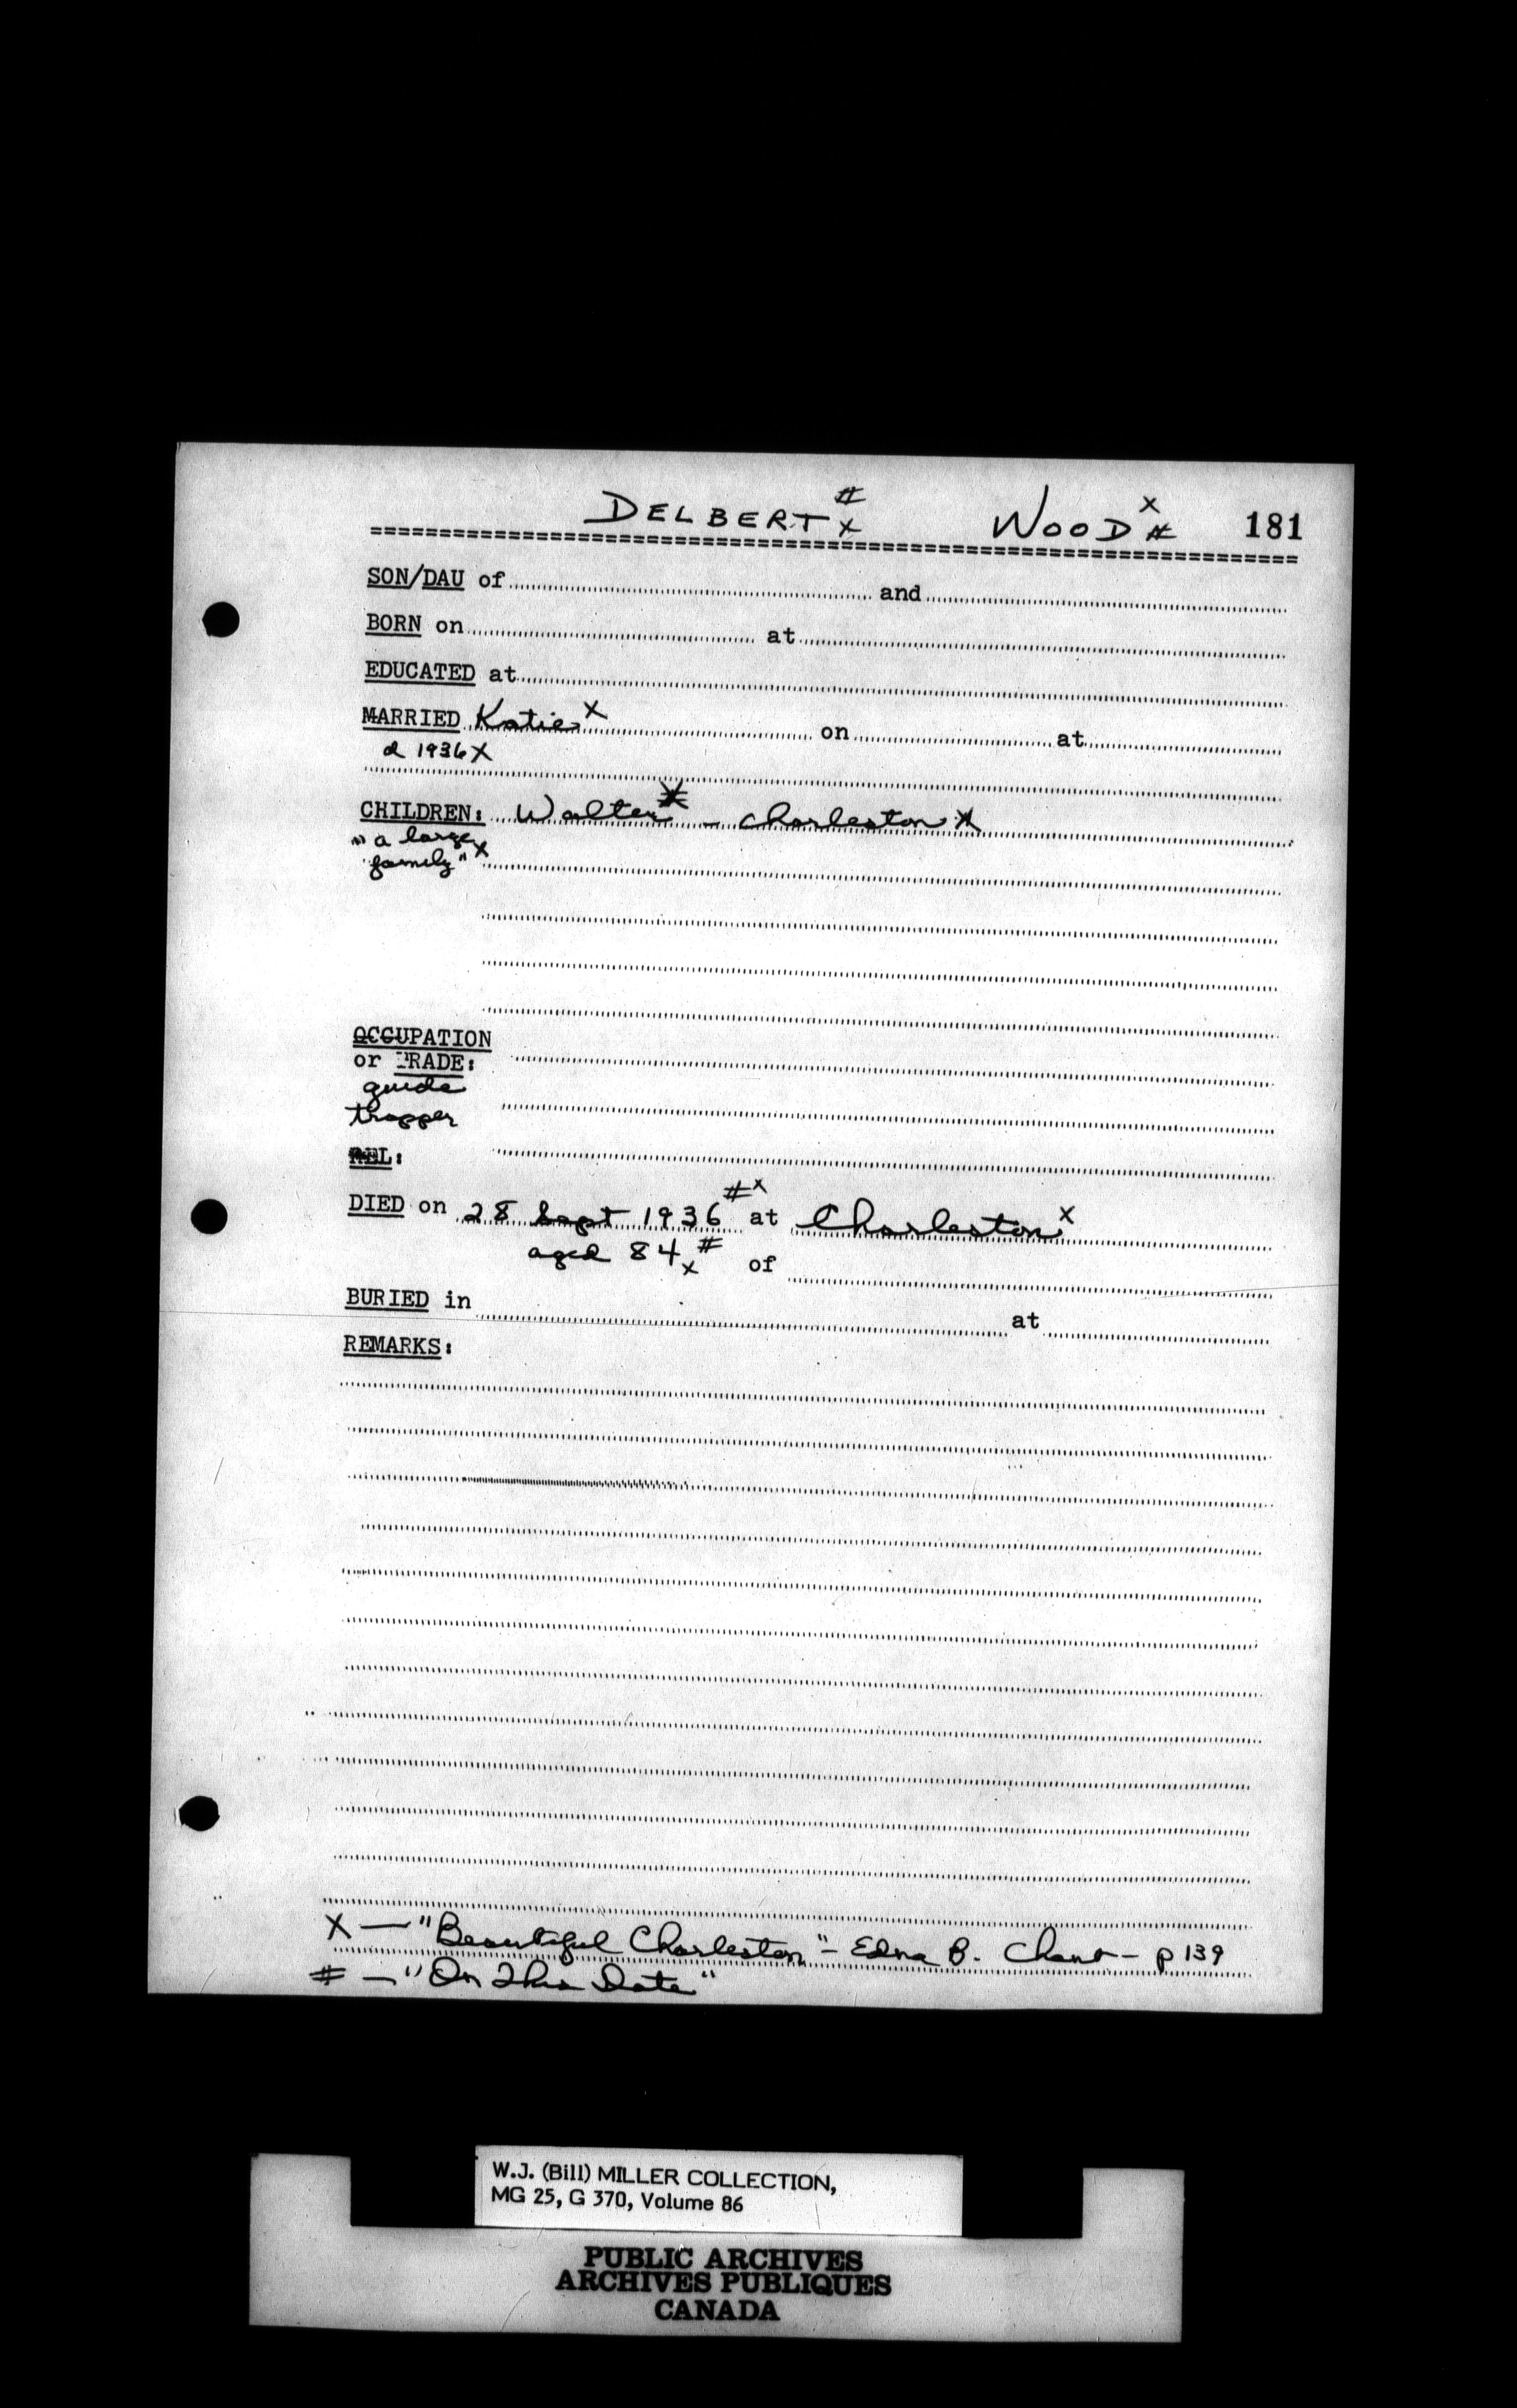 DELBERT # x WOOD x # 181
SON/DAU of and
BORN on at
EDUCATED at
MARRIED Katie x on at
d 1936 x
CHILDREN: Walter x # - Charleston x
"a large
family" x
OCCUPATION
or TRADE:
guide
trapper
REL:
DIED on 28 Sept 1936 # x at Charleston x
aged 84 x # of
BURIED in at
REMARKS:
X — "Beautiful Charleston" - Edna B. Chant - p 139
# — "On This Date"
W.J. (Bill) MILLER COLLECTION,
MG 25, G 370, Volume 86
PUBLIC ARCHIVES
ARCHIVES PUBLIQUES
CANADA